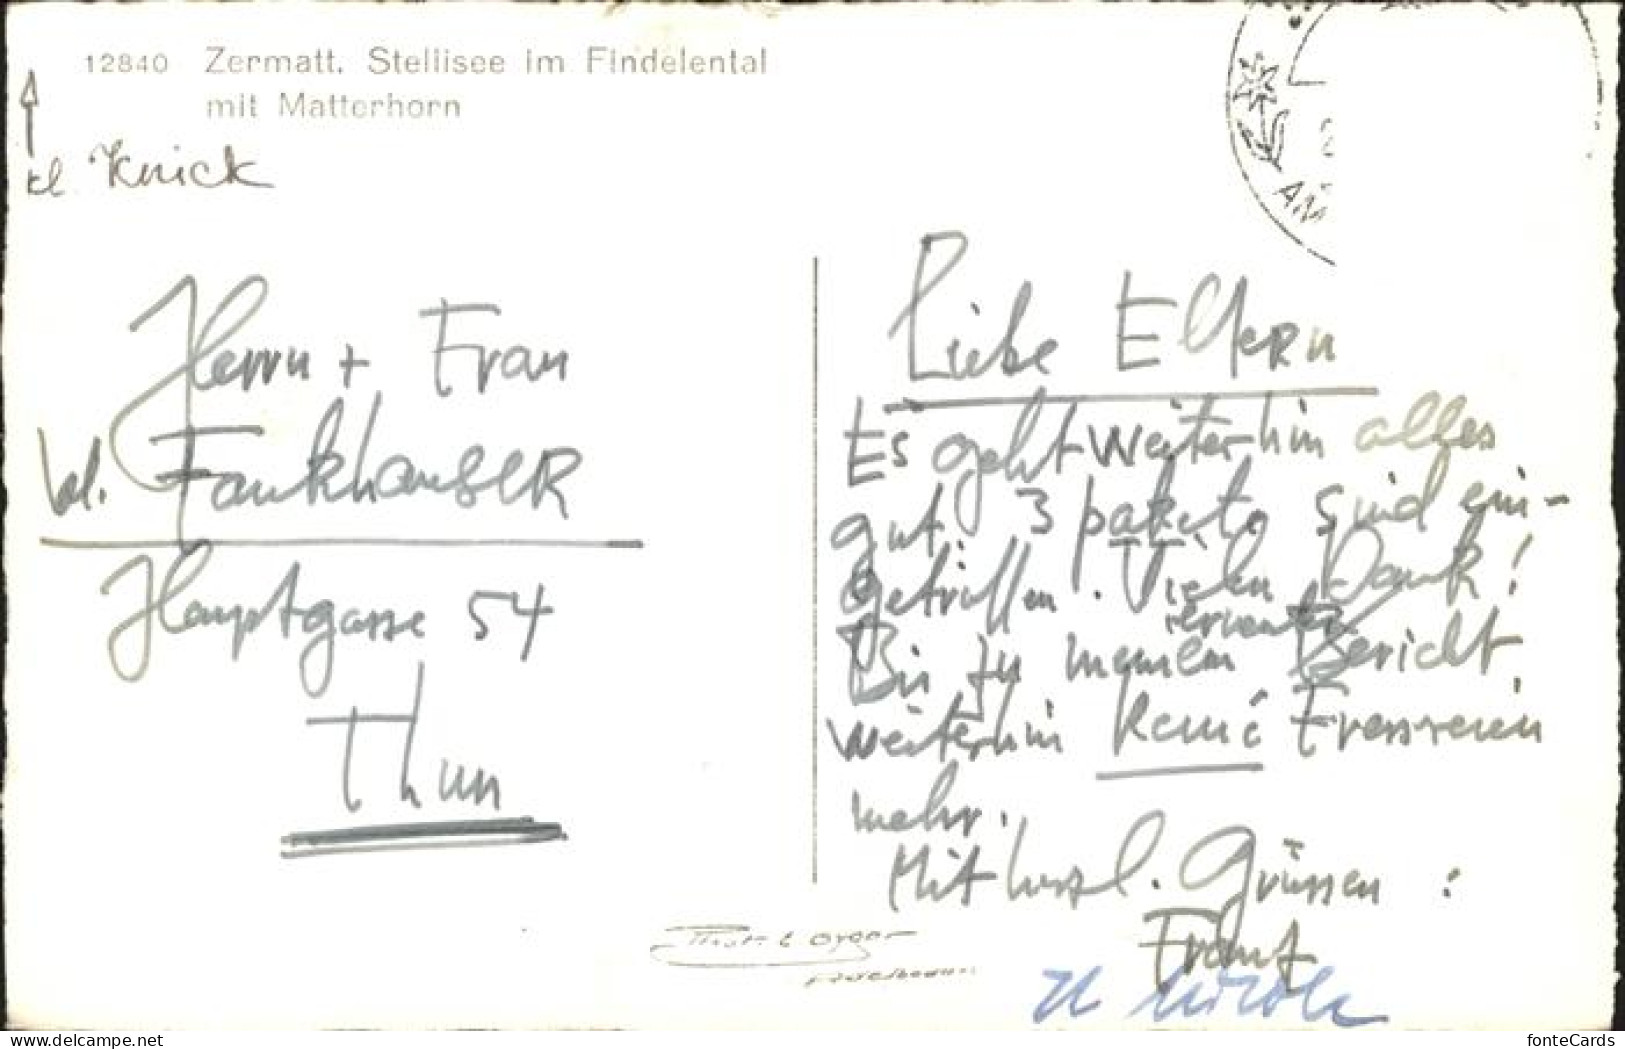 12840 Zermatt. Stellisee im Findelental
mit Matterhorn
kl Knick
Herrn + Frau
Fankhauser
Hauptgasse 54
Thun
Liebe Eltern
Es geht weiterhin alles
gut. 3 Pakete sind ein-
getroffen. Vielen Dank!
erwarten
Bis zu meinem Bericht
weiterhin keine Fressereien
mehr.
Mit herzl. Grüssen :
Franz
Phot.
www.delcampe.net
fonteCards